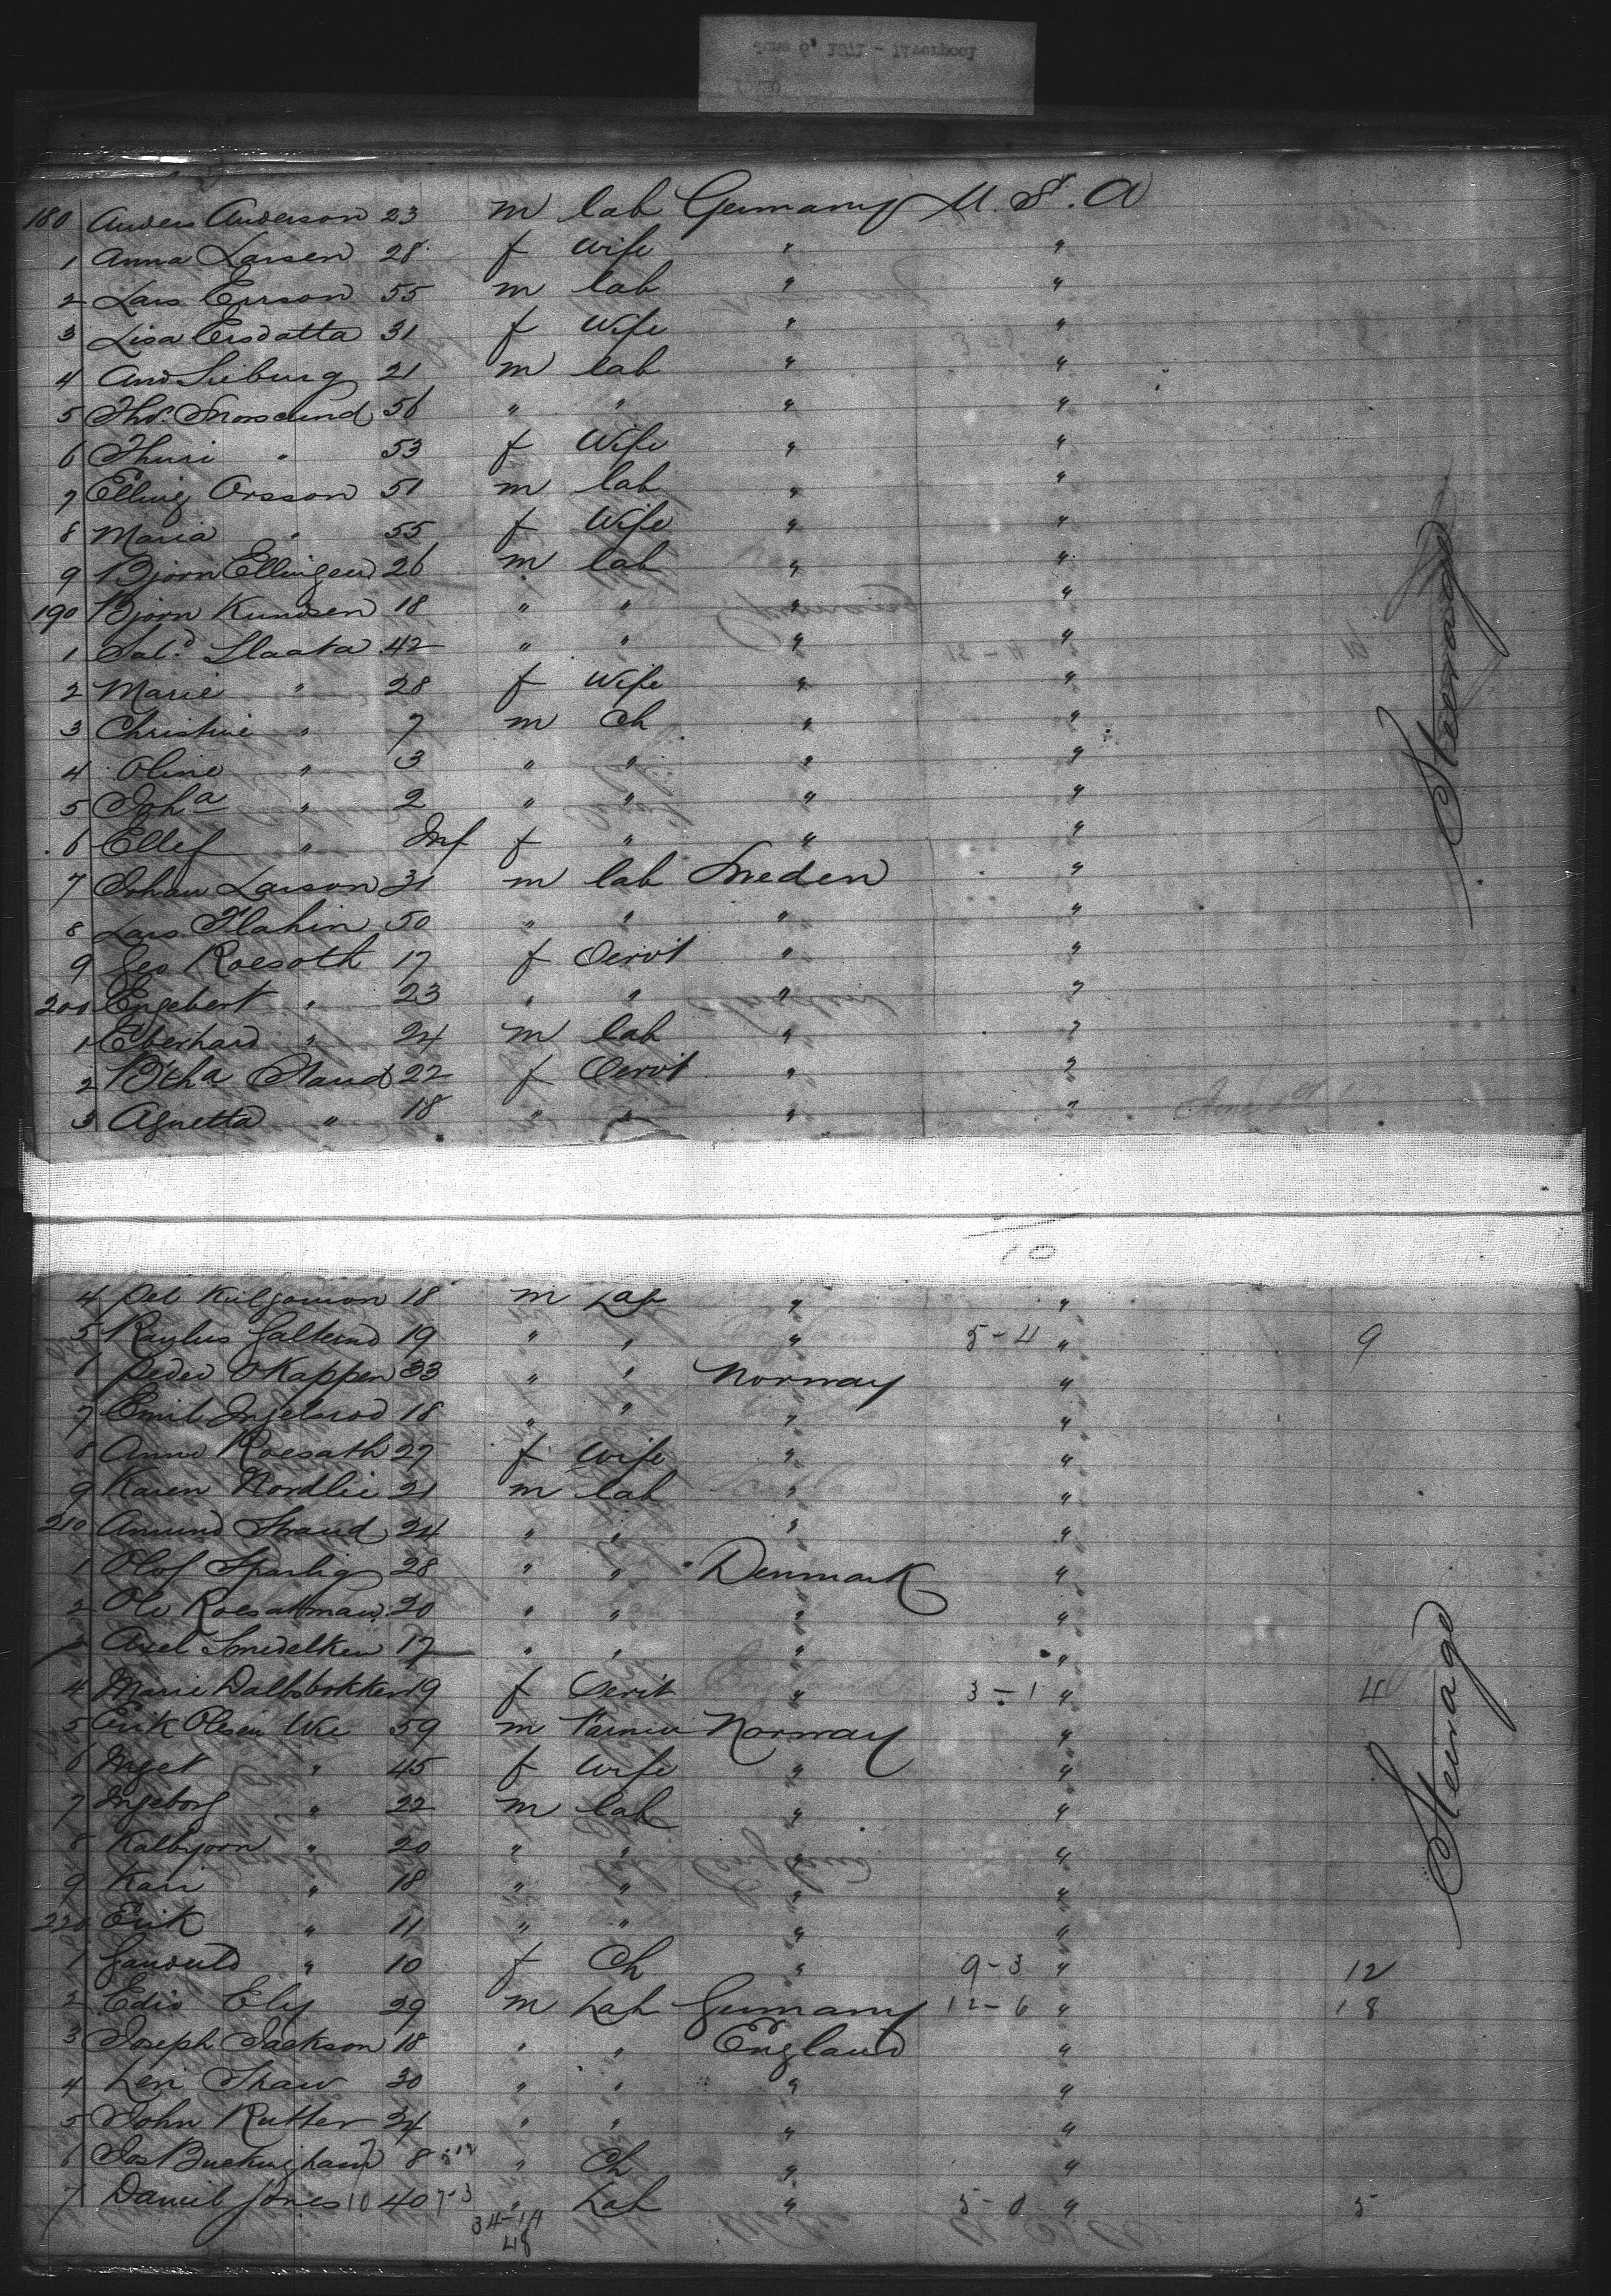 180 Anders Anderson 23 m lab Germany U.S.A
1 Anna Larsen 28 f Wife " "
2 Lars Erson 55 m lab " "
3 Lisa Ersdatta 31 f Wife " "
4 And Sieburg 21 m lab " "
5 Thos. 56 " " " "
6 Thuri " 53 f Wife " "
7 Elling Orsson 51 m lab " "
8 Maria " 55 f Wife " "
9 Bjorn Ellingen 26 m lab " "
190 Bjorn Kundsen 18 " " " "
1 Sald Slaata 42 " " " "
2 Marie " 28 f Wife " "
3 Christine " 7 m Ch " "
4 Oline " 3 " " " "
5 Joha " 2 " " " "
6 Ellef " Inf f " " "
7 Johan Larson 31 m lab Sweden "
8 Lars Flahin 50 " " " "
9 Geo Roesoth 17 f Servt " "
200 Engebert " 23 " " " "
1 Eberhard " 24 m lab " "
2 Btha Staud 22 f Servt " "
3 Agnetta " 18 " " " "
Steerage
10
4 Pet 18 m Lab " "
5 19 " " " 5-4 " 9
6 Peder OKappen 33 " " Norway "
7 Emil Ingelsrod 18 " " " "
8 Anne Roesath 27 f Wife " "
9 Karen Nordlie 21 m lab " "
210 Amund Straud 24 " " " "
1 Olof Sparlig 28 " " Denmark "
2 Ole Roesatmaw 20 " " " "
3 Axel Smedelken 17 " " " "
4 Marie Dalbsbokken 19 f Servt " 3-1 " 4
5 Erik Olsen Wie 59 m Farmer Norway "
6 Inget " 45 f Wife " "
7 Ingeborg " 22 m lab " "
8 Kalbjorn " 20 " " " "
9 Kari " 18 " " " "
220 Erik " 11 " " " "
1 " 10 f Ch " 9-3 " 12
2 Edis Ely 29 m Lab Germany 12-6 " 18
3 Joseph Jackson 18 " " England "
4 Levi Shaw 30 " " " "
5 John Rutter 24 " " " "
6 Jos Buckingham 8 " Ch " "
7 Daniel Jones 10 40 7-3 " Lab " 5-0 " 5
34-14
48
Steerage